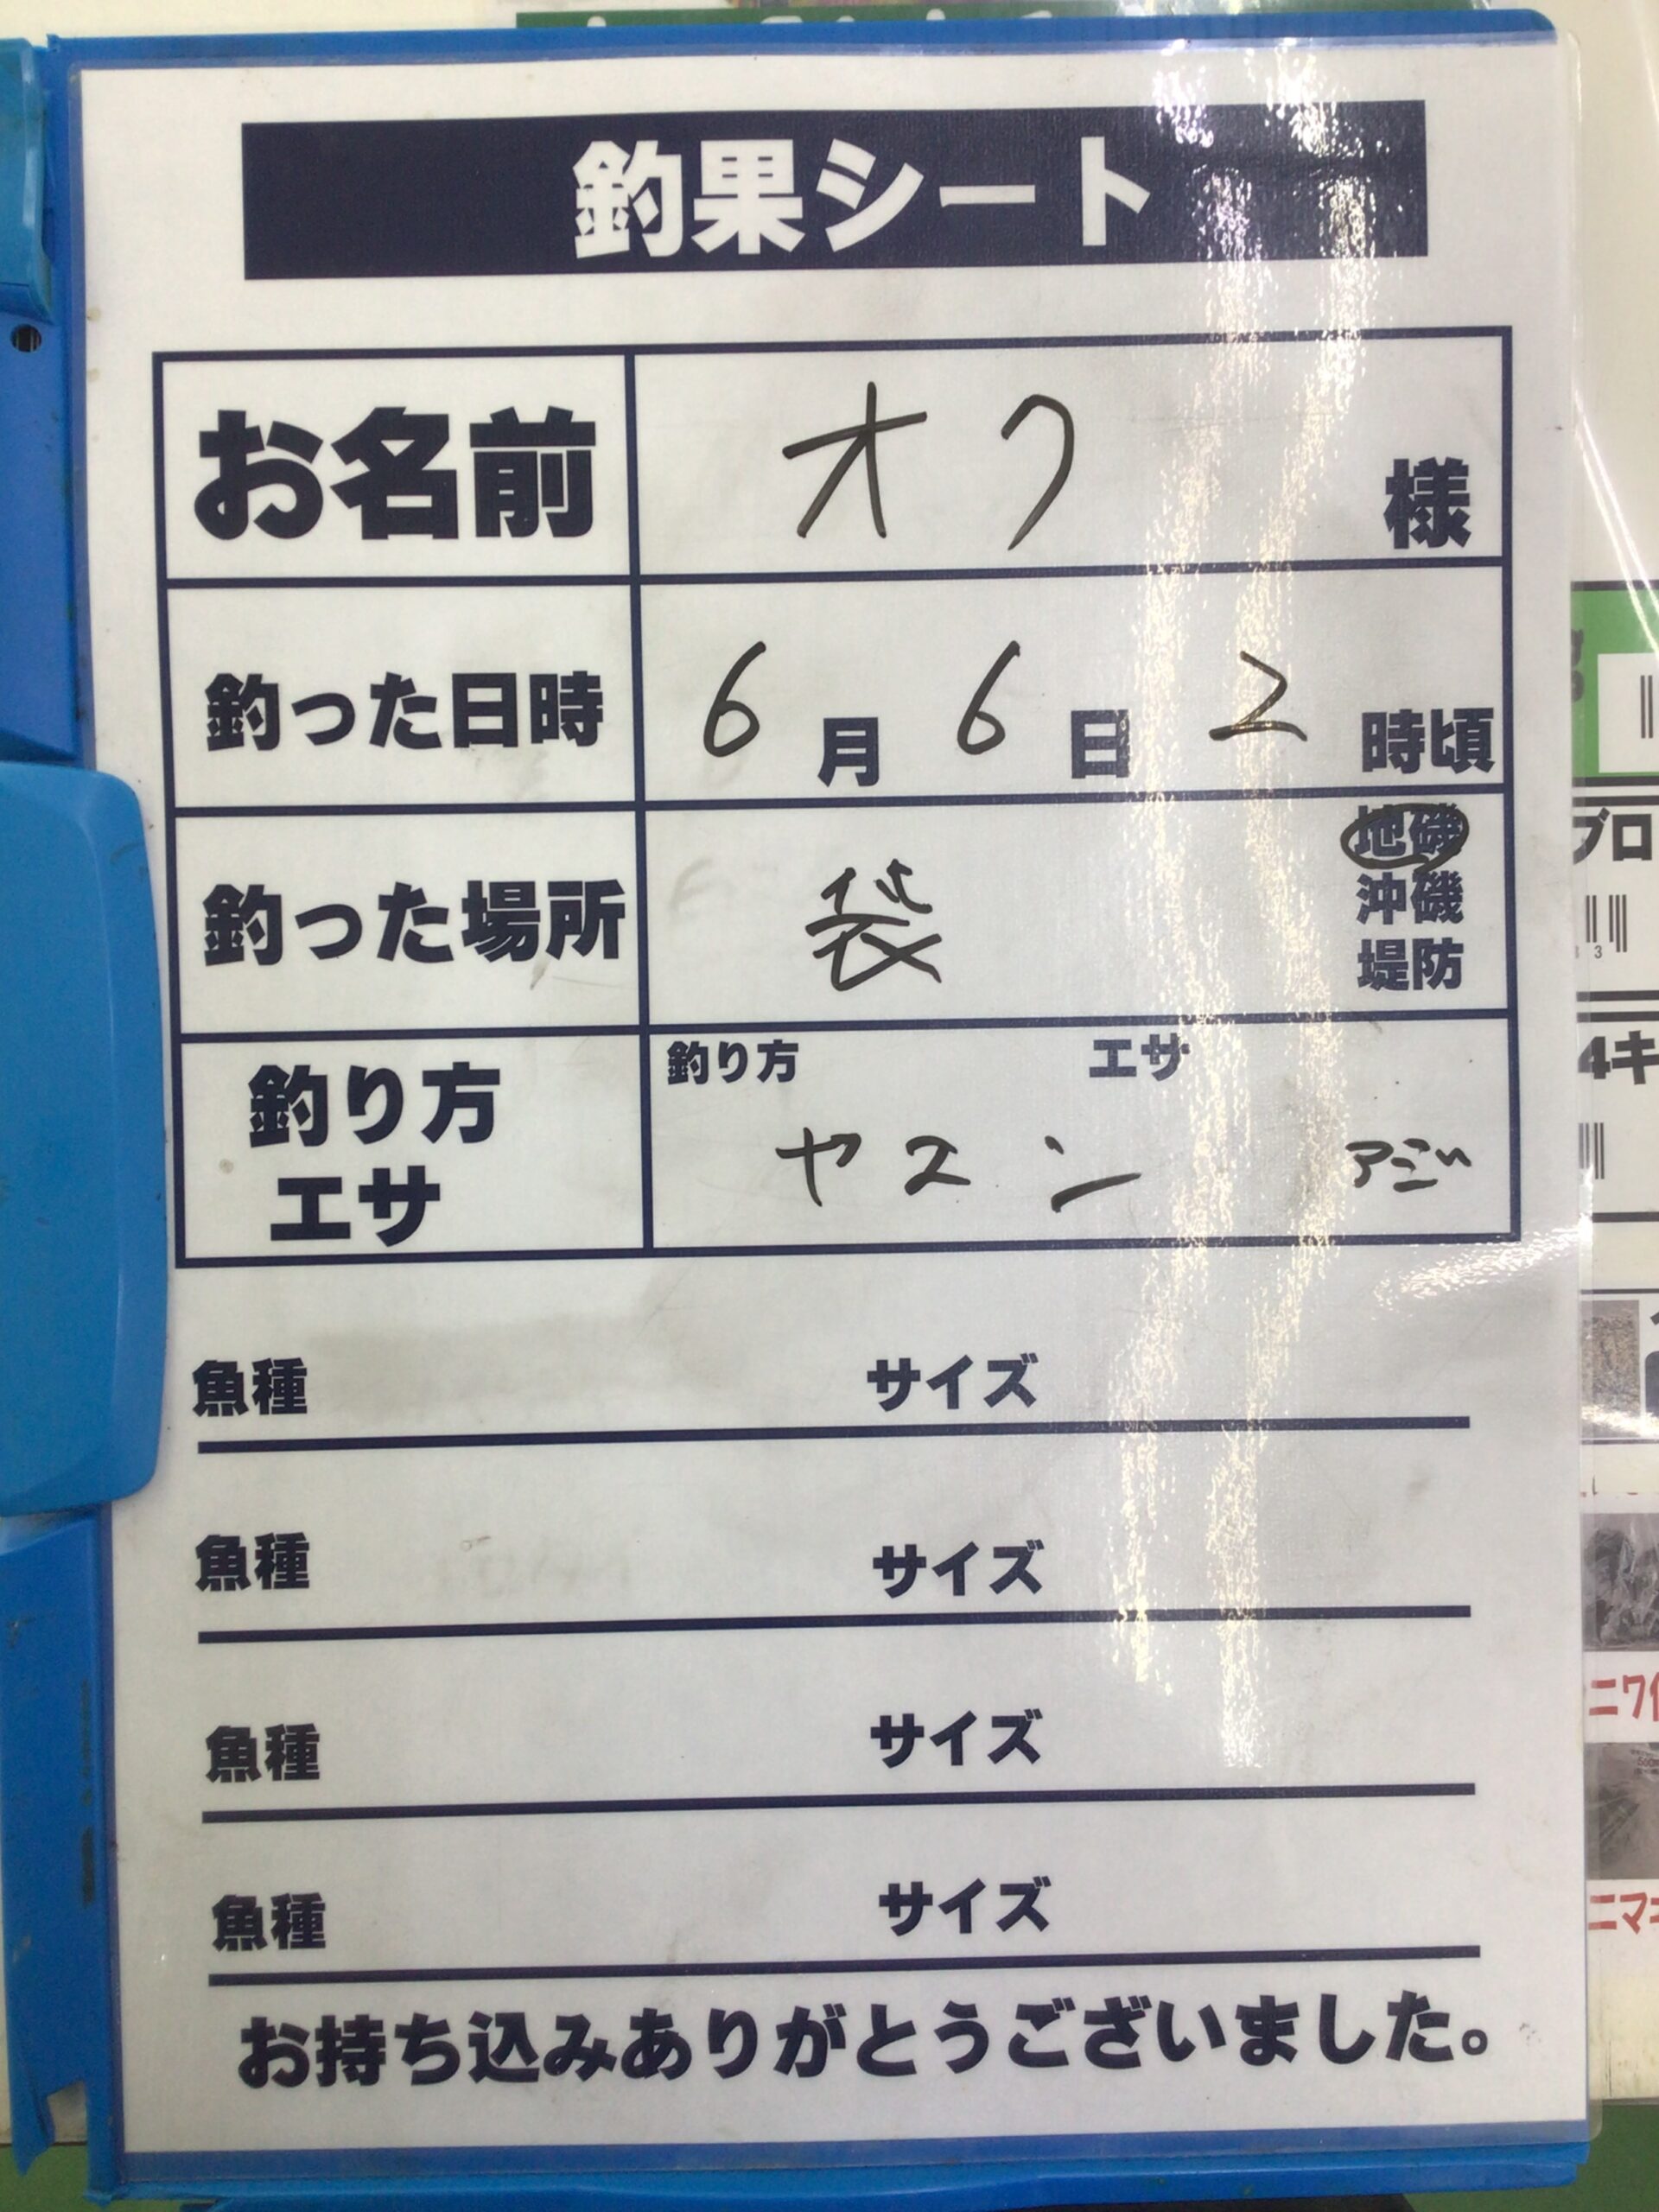 釣果シート
お名前 オク 様
釣った日時 6月6日2時頃
釣った場所 袋 地磯
沖磯
堤防
釣り方 エサ
釣り方 エサ
ヤエン アジ
魚種 サイズ
魚種 サイズ
魚種 サイズ
魚種 サイズ
お持ち込みありがとうございました。
ブロ
4キ
ニワ
ニマキ